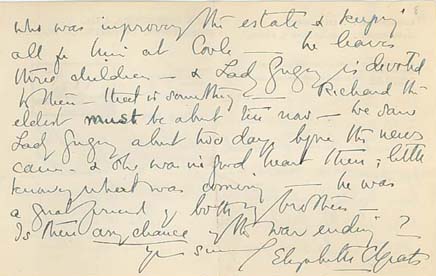 who was improving the estate & keeping
all for him at Coole — he leaves
three children — & Lady Gregory is devoted
to them — that is something — Richard the
eldest must be about ten now — we saw
Lady Gregory about two days before the news
came — & she was in good heart then, little
knowing what was coming he was
a great friend of both my brothers —
Is there any chance of the war ending?
Yrs sin
Elizabeth C Yeats